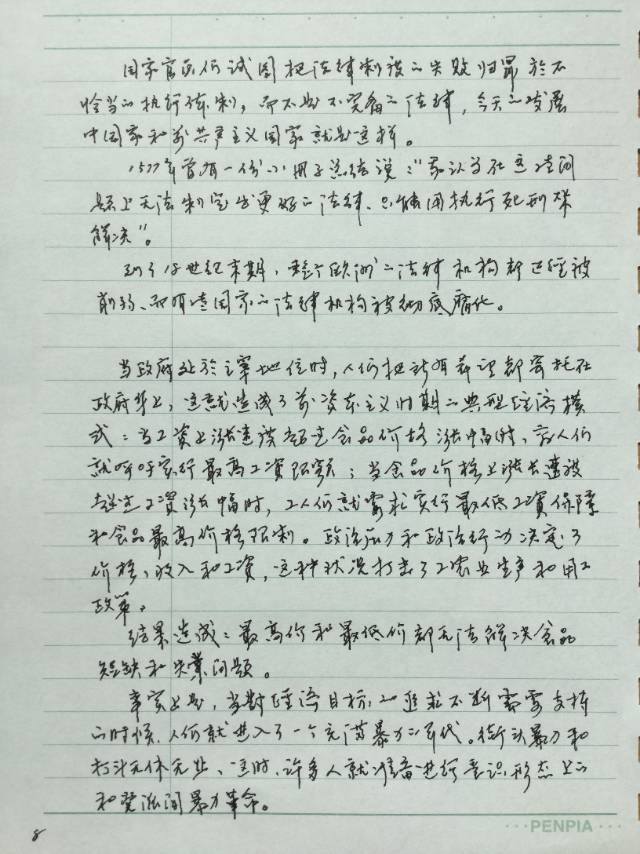 国家官员们试图把法律制设的失败归罪於不
恰当的执行体制，而不是不完备的法律，今天的发展
中国家和前共产主义国家就是这样。
1577年曾有一份小册子总结说：“家认为在这
题上无法制定出更好的法律、只能用执行死刑来
解决”。
到了18世纪末期，整个欧洲的法律机构都已经被
削弱、而有些国家的法律机构被彻底腐化。
当政府处於主宰地位时，人们把所有希望都寄托在
政府身上，这就造成了前资本主义时期的典型经济模
式：当工资上涨速度超过食品价格涨幅时，商人们
就呼吁实行最高工资限额；当食品价格上涨速度
超过工资涨幅时，工人们就需求实行最低工资保障
和食品最高价格限制。政治压力和政治行动决定了
价格、收入和工资，这种状况打击了工农业生产和用工
政策。
结果造成：最高价和最低价都无法解决食品
短缺和失业问题。
事实上是，当对经济目标的追求不断需要支持
的时候，人们就进入了一个充满暴力的年代。街头暴力和
打斗无休无止、这时，许多人就准备进行意识形态上的
和党派间暴力革命。
8
PENPIA